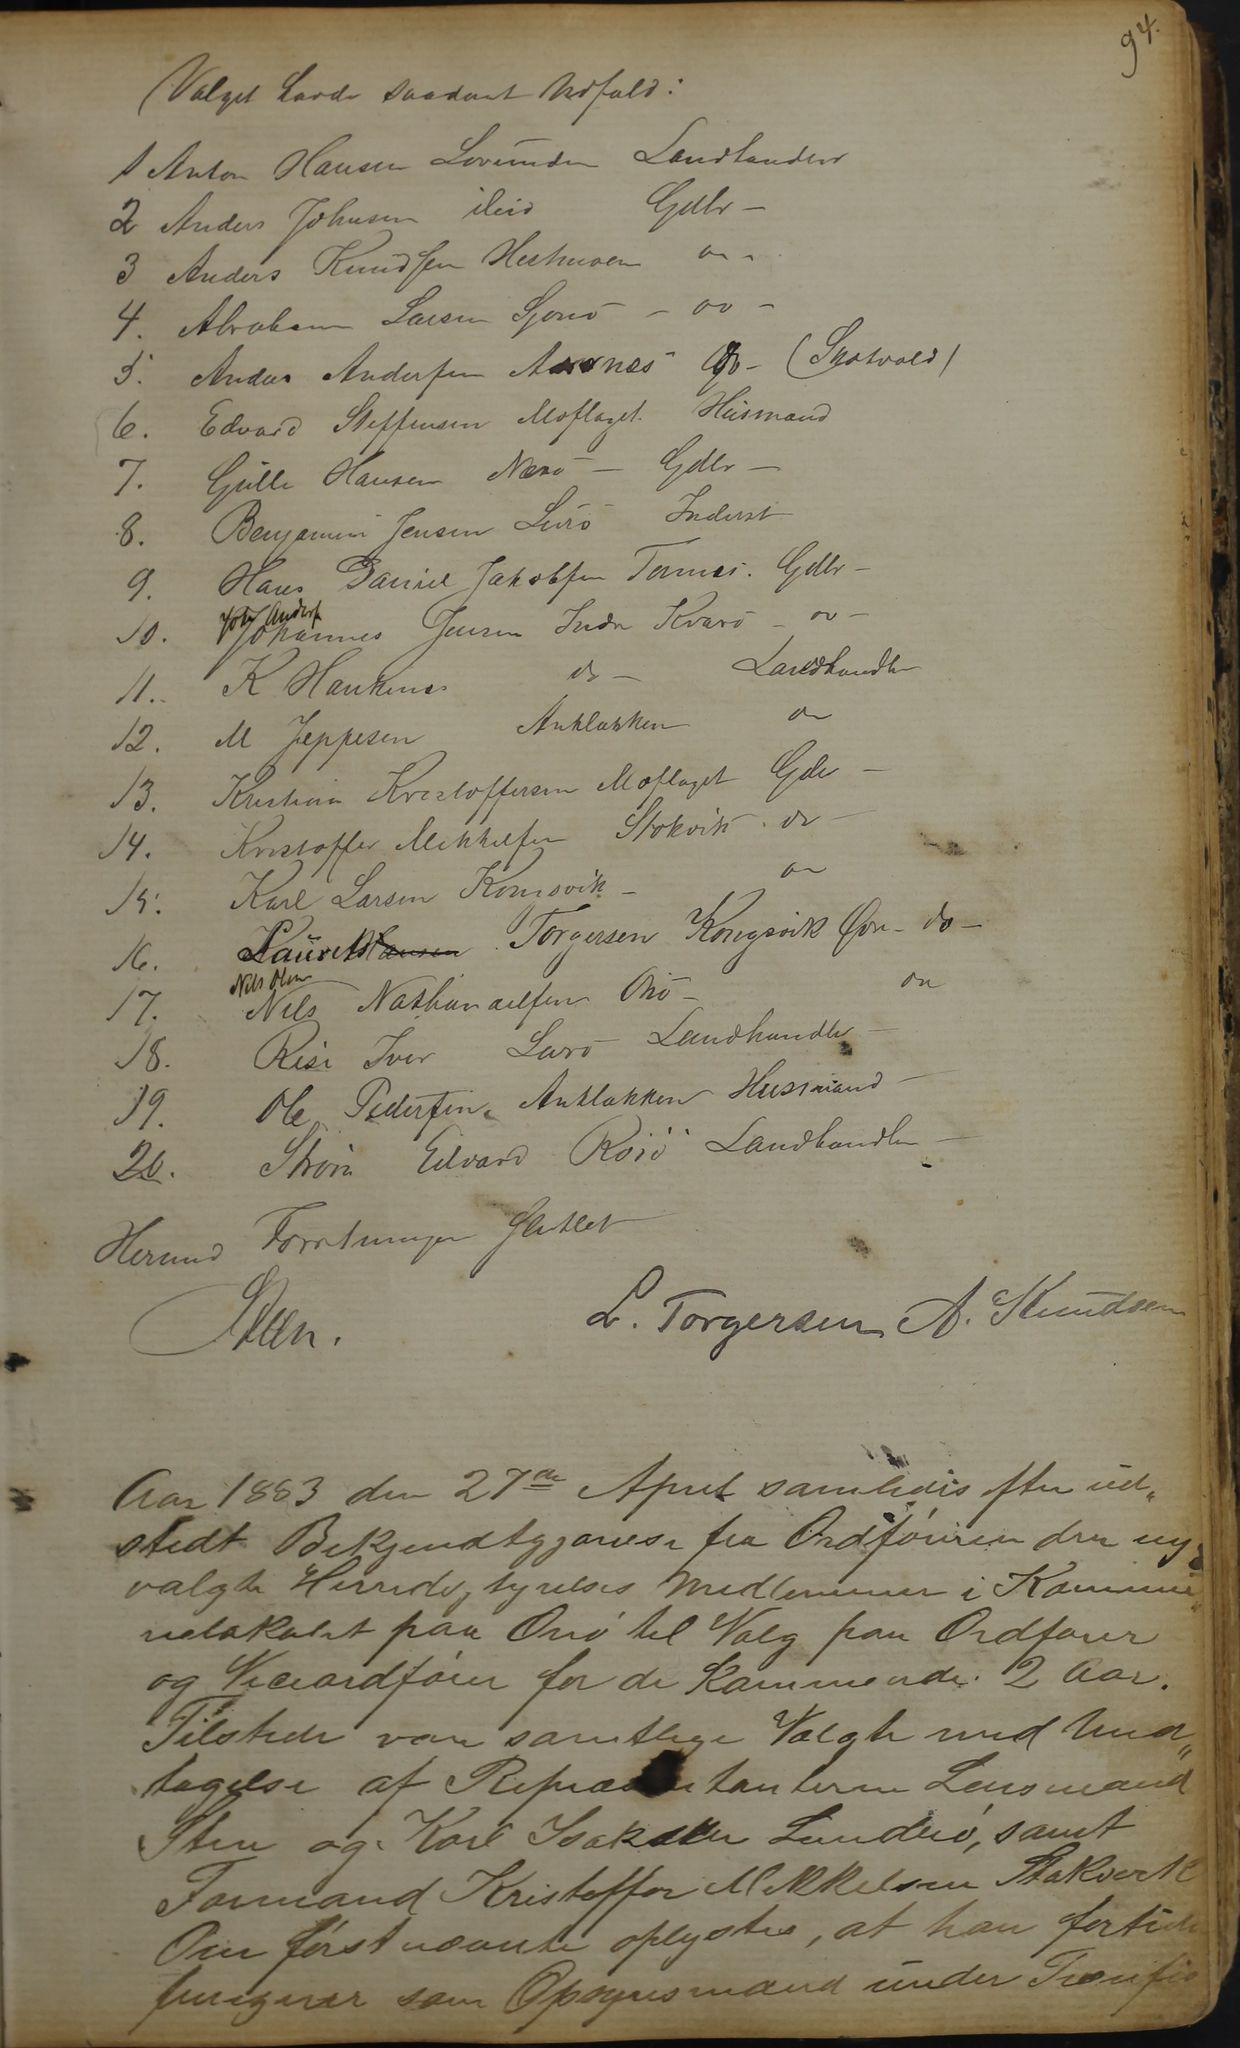 94.
Valget havde saadant Udfald:
1 Anton Hansen Lovunden Landhandler
2 Anders Johnsen ibid Gdbr –
3 Anders Knudsen Hestmoen do -
4. Abraham Larsen Sjonø – do –
5. Anders Andersen Aernes do – (Skotvold)
6. Edvard Steffensen Moflaget Husmand
7. Gulle Hansen Nesø – Gdbr –
8. Benjamin Jensen Lurö Inderst
9. Hans Daniel Jakobsen Tonnes. Gdbr –
Joh Anders
10. Johannes Jensen Indr Kvarö – do –
11. K Haukenes do – Landhandler
12. M Jeppesen Anklakken do
13. Kristian Kristoffersen Moflaget Gdbr –
14. Kristoffer Mikkelsen Stokvik . do –
15. Karl Larsen Konsvik – do
16. Laurits Hansen Torgersen Kongsvik Øvr – do –
Nils Olsen
17. Nils Nathanaelsen Onö – do
18. Resi Iver Lurö Landhandler –
19. Ole Pedersen, Anklakken Husmand –
20. Strøm Edvard Rösö Landhandler –
Hermed Forretningen sluttet
Steen. L. Torgersen A. Knudsen
Aar 1883 den 27de April samledes efter ud„
stedt Bekjendtgjørelse fra Ordføreren den ny„
valgte Herredsstyrelses Medlemmer i Kommu„
nelokalet paa Onö til Valg paa Ordfører
og Viceordfører for de kommende 2 Aar.
Tilstede var samtlige Valgte med Und„
tagelse af Repræsentanterne Lensmand
Sten og Karl Isaksen Sunderö, samt
Formand Kristoffer Mikkelsen Stokvik
Om förstnævnte oplystes, at han fortiden
fungerer som Opsynsmand under Torskfis